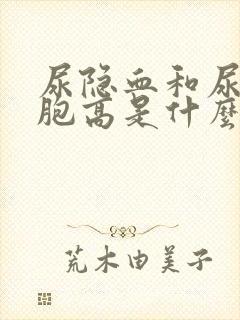 尿隐血和尿
胞高是什麽
荒木由美子